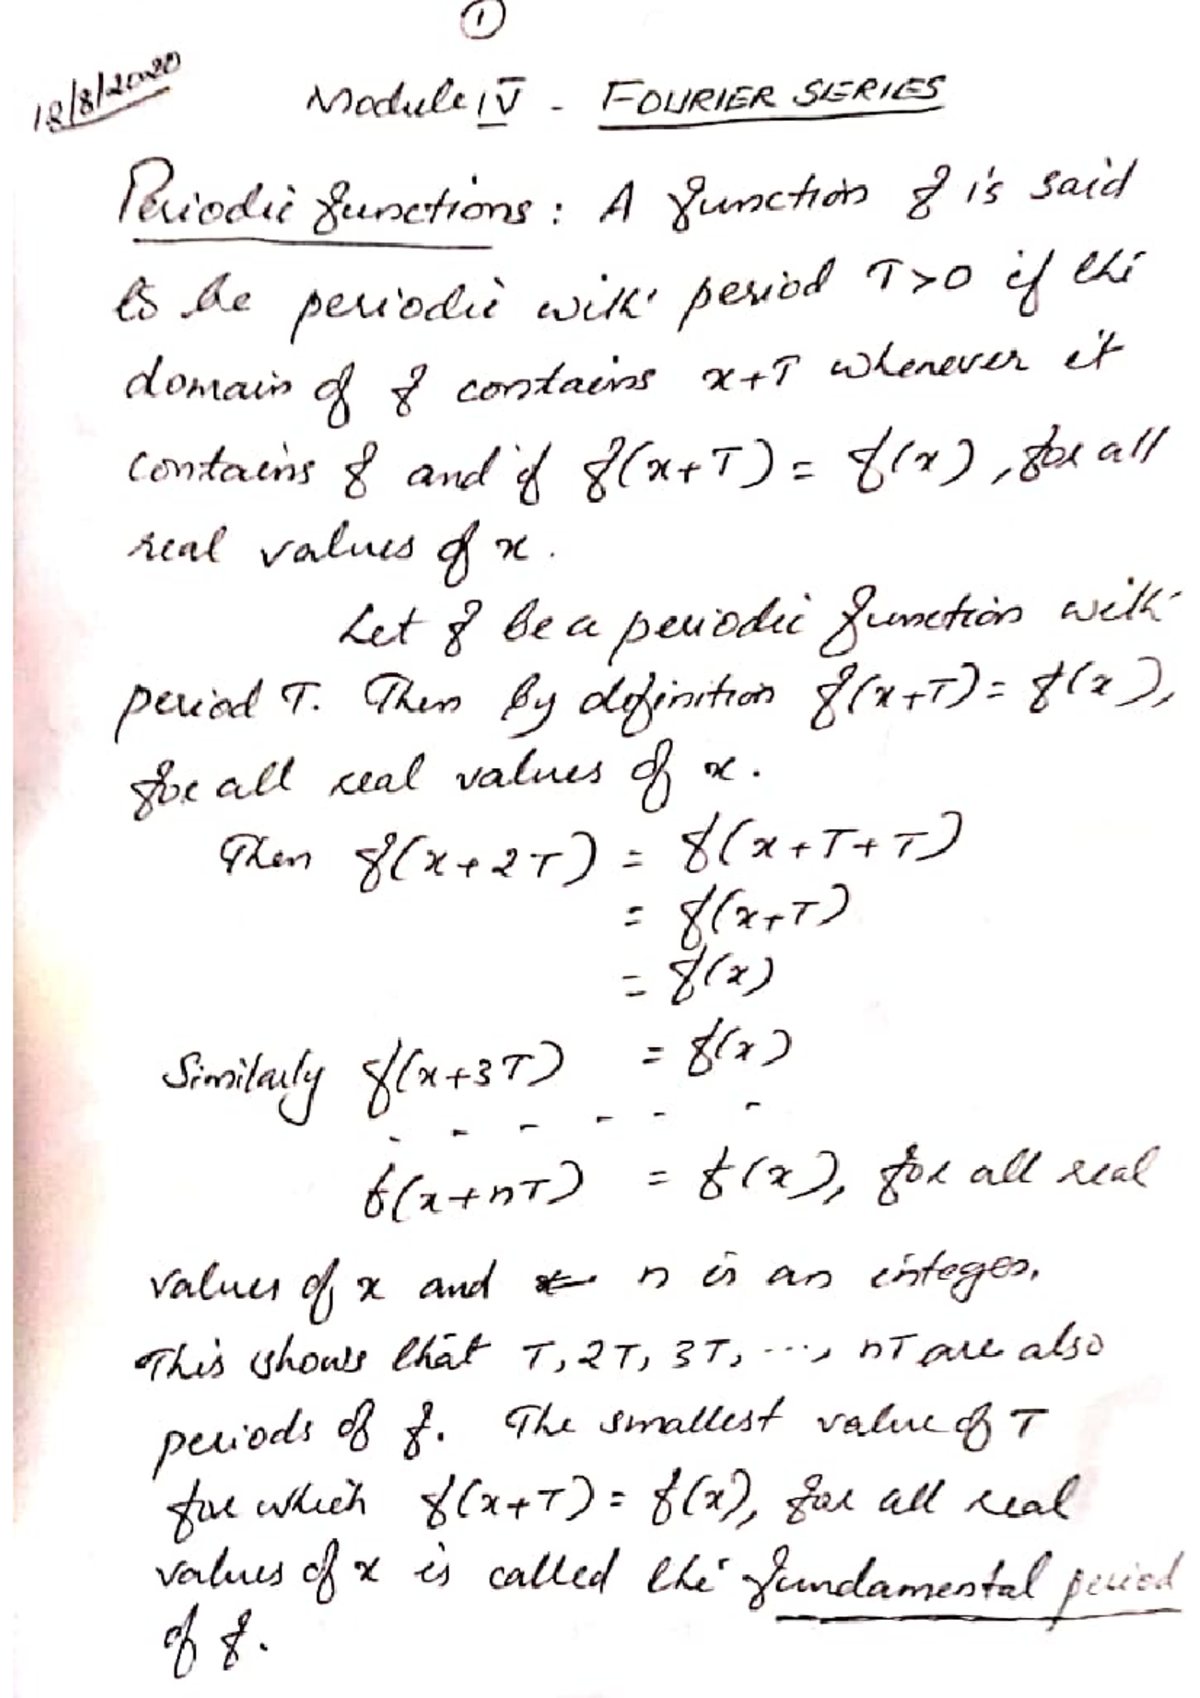 1
18/8/2020
Module IV - FOURIER SERIES
Periodic functions: A function f is said
to be periodic with period T>0 if the
domain of f contains x+T whenever it
contains f and if f(x+T) = f(x), for all
real values of x.
Let f be a periodic function with
period T. Then by definition f(x+T) = f(x),
for all real values of x.
Then f(x+2T) = f(x+T+T)
= f(x+T)
= f(x)
Similarly f(x+3T) = f(x)
- - - - - -
f(x+nT) = f(x), for all real
values of x and n is an integer.
This shows that T, 2T, 3T, ..., nT are also
periods of f. The smallest value of T
for which f(x+T) = f(x), for all real
values of x is called the fundamental period
of f.